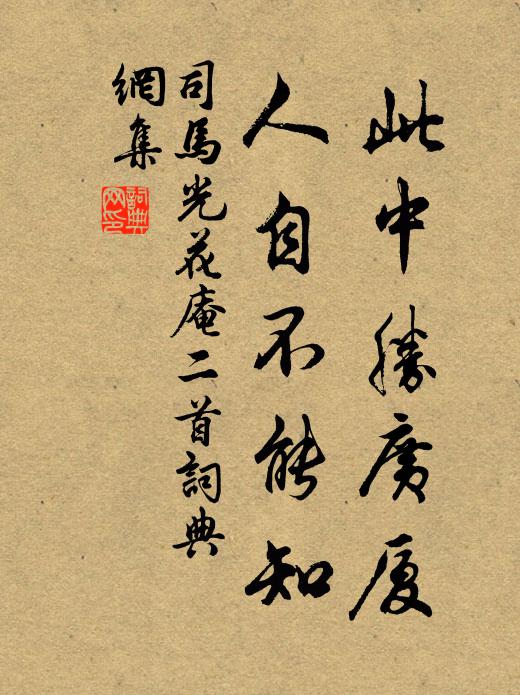 此中勝廣厦
人自不能知
司馬光花庵二首詞典
網集
詞典
网印